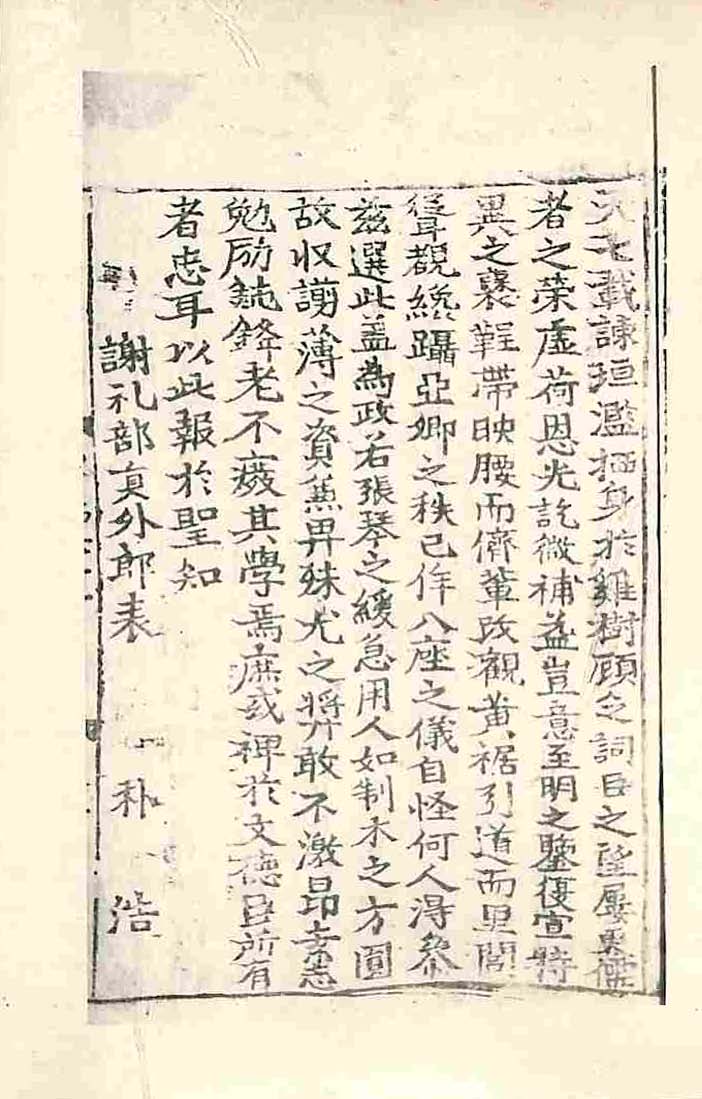 七載諫垣濫栖身於雞樹顧念詞臣之望屢累儒
者之荣虛荷恩光訖微補益豈意至明之鑒復宣特
異之褒鞓帶映腰而儕輩改觀黄裾引道而里閭
聳觀纔躡亞卿之秩已侔八座之儀自怪何人淂叅
兹選此盖為政若張琴之緩急用人如制木之方圓
故收謭薄之資畀殊尤之敢不激昂素志
勉励鈍鋒老不癈其學焉庶或裨於文德臣所有
者忠耳以此報於聖知
謝礼部員外郎表 朴 浩